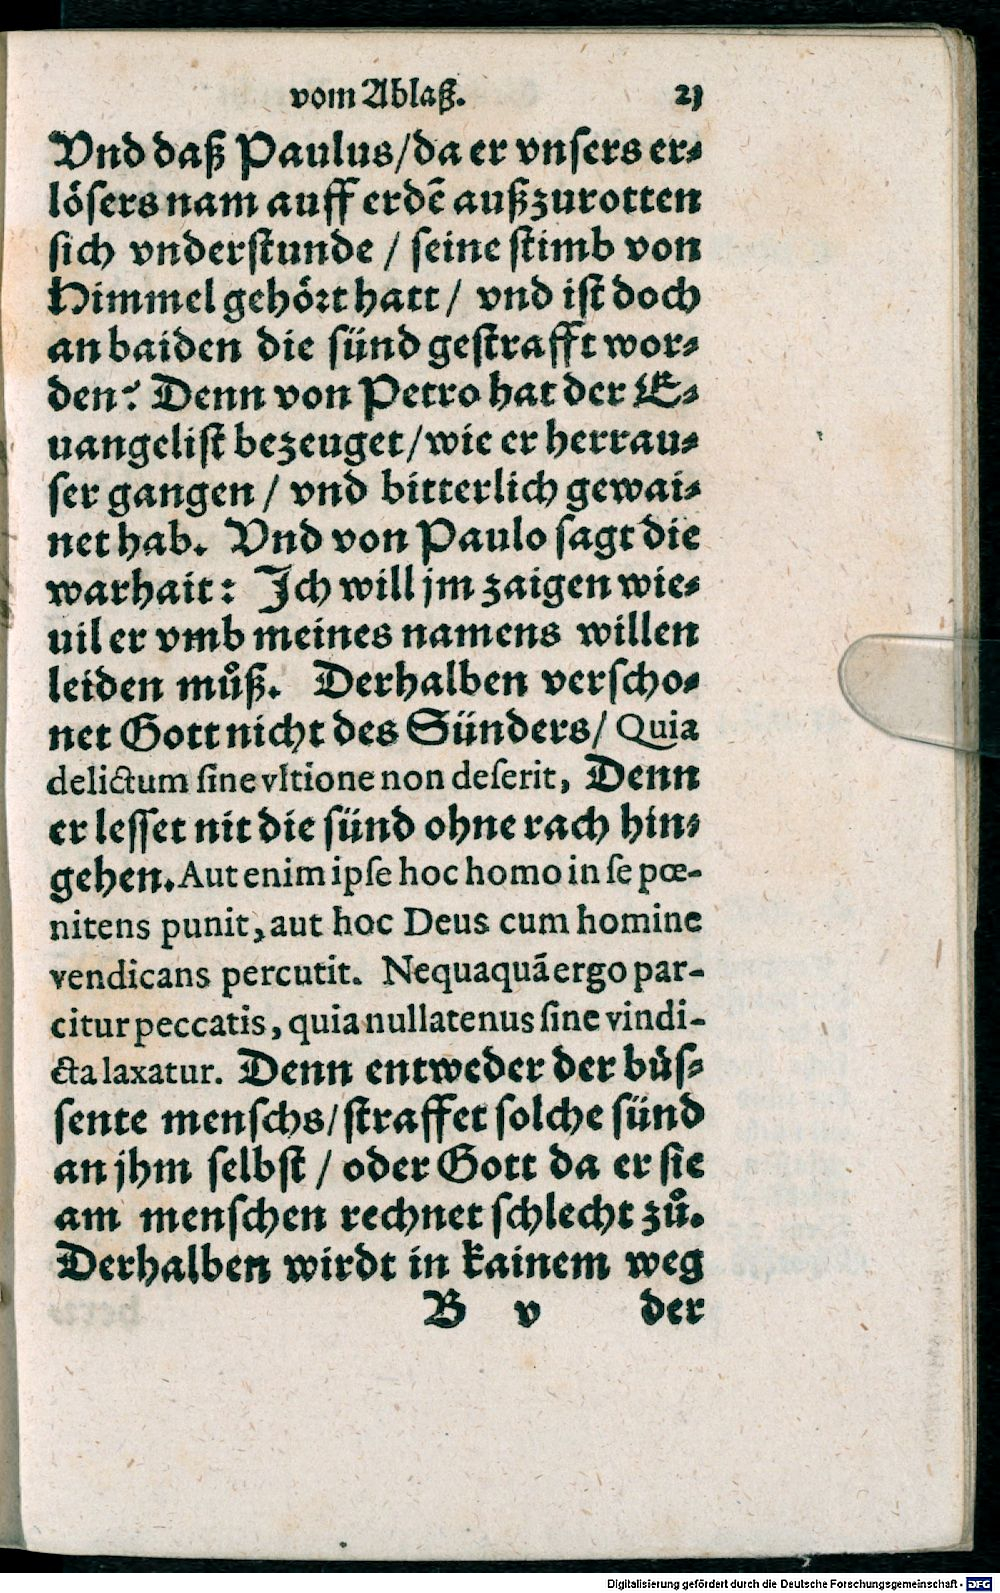 vom Ablaß. 25
Vnd daß Paulus/da er vnsers er⸗
lösers nam auff erdē außzurotten
sich vnderstunde / seine stimb von
Himmel gehört hatt / vnd ist doch
an baiden die sünd gestrafft wor⸗
den? Denn von Petro hat der E⸗
uangelist bezeuget/wie er herrau⸗
ser gangen / vnd bitterlich gewai⸗
net hab. Vnd von Paulo sagt die
warhait: Ich will jm zaigen wie⸗
uil er vmb meines namens willen
leiden můß. Derhalben verscho⸗
net Gott nicht des Sünders/ Quia
delictum sine vltione non deserit, Denn
er lesset nit die sünd ohne rach hin⸗
gehen. Aut enim ipse hoc homo in se pœ-
nitens punit, aut hoc Deus cum homine
vendicans percutit. Nequaquā ergo par-
citur peccatis, quia nullatenus sine vindi-
cta laxatur. Denn entweder der bůs⸗
sente menschs/straffet solche sünd
an jhm selbst / oder Gott da er sie
am menschen rechnet schlecht zů.
Derhalben wirdt in kainem weg
B v der
Digitalisierung gefördert durch die Deutsche Forschungsgemeinschaft - DFG